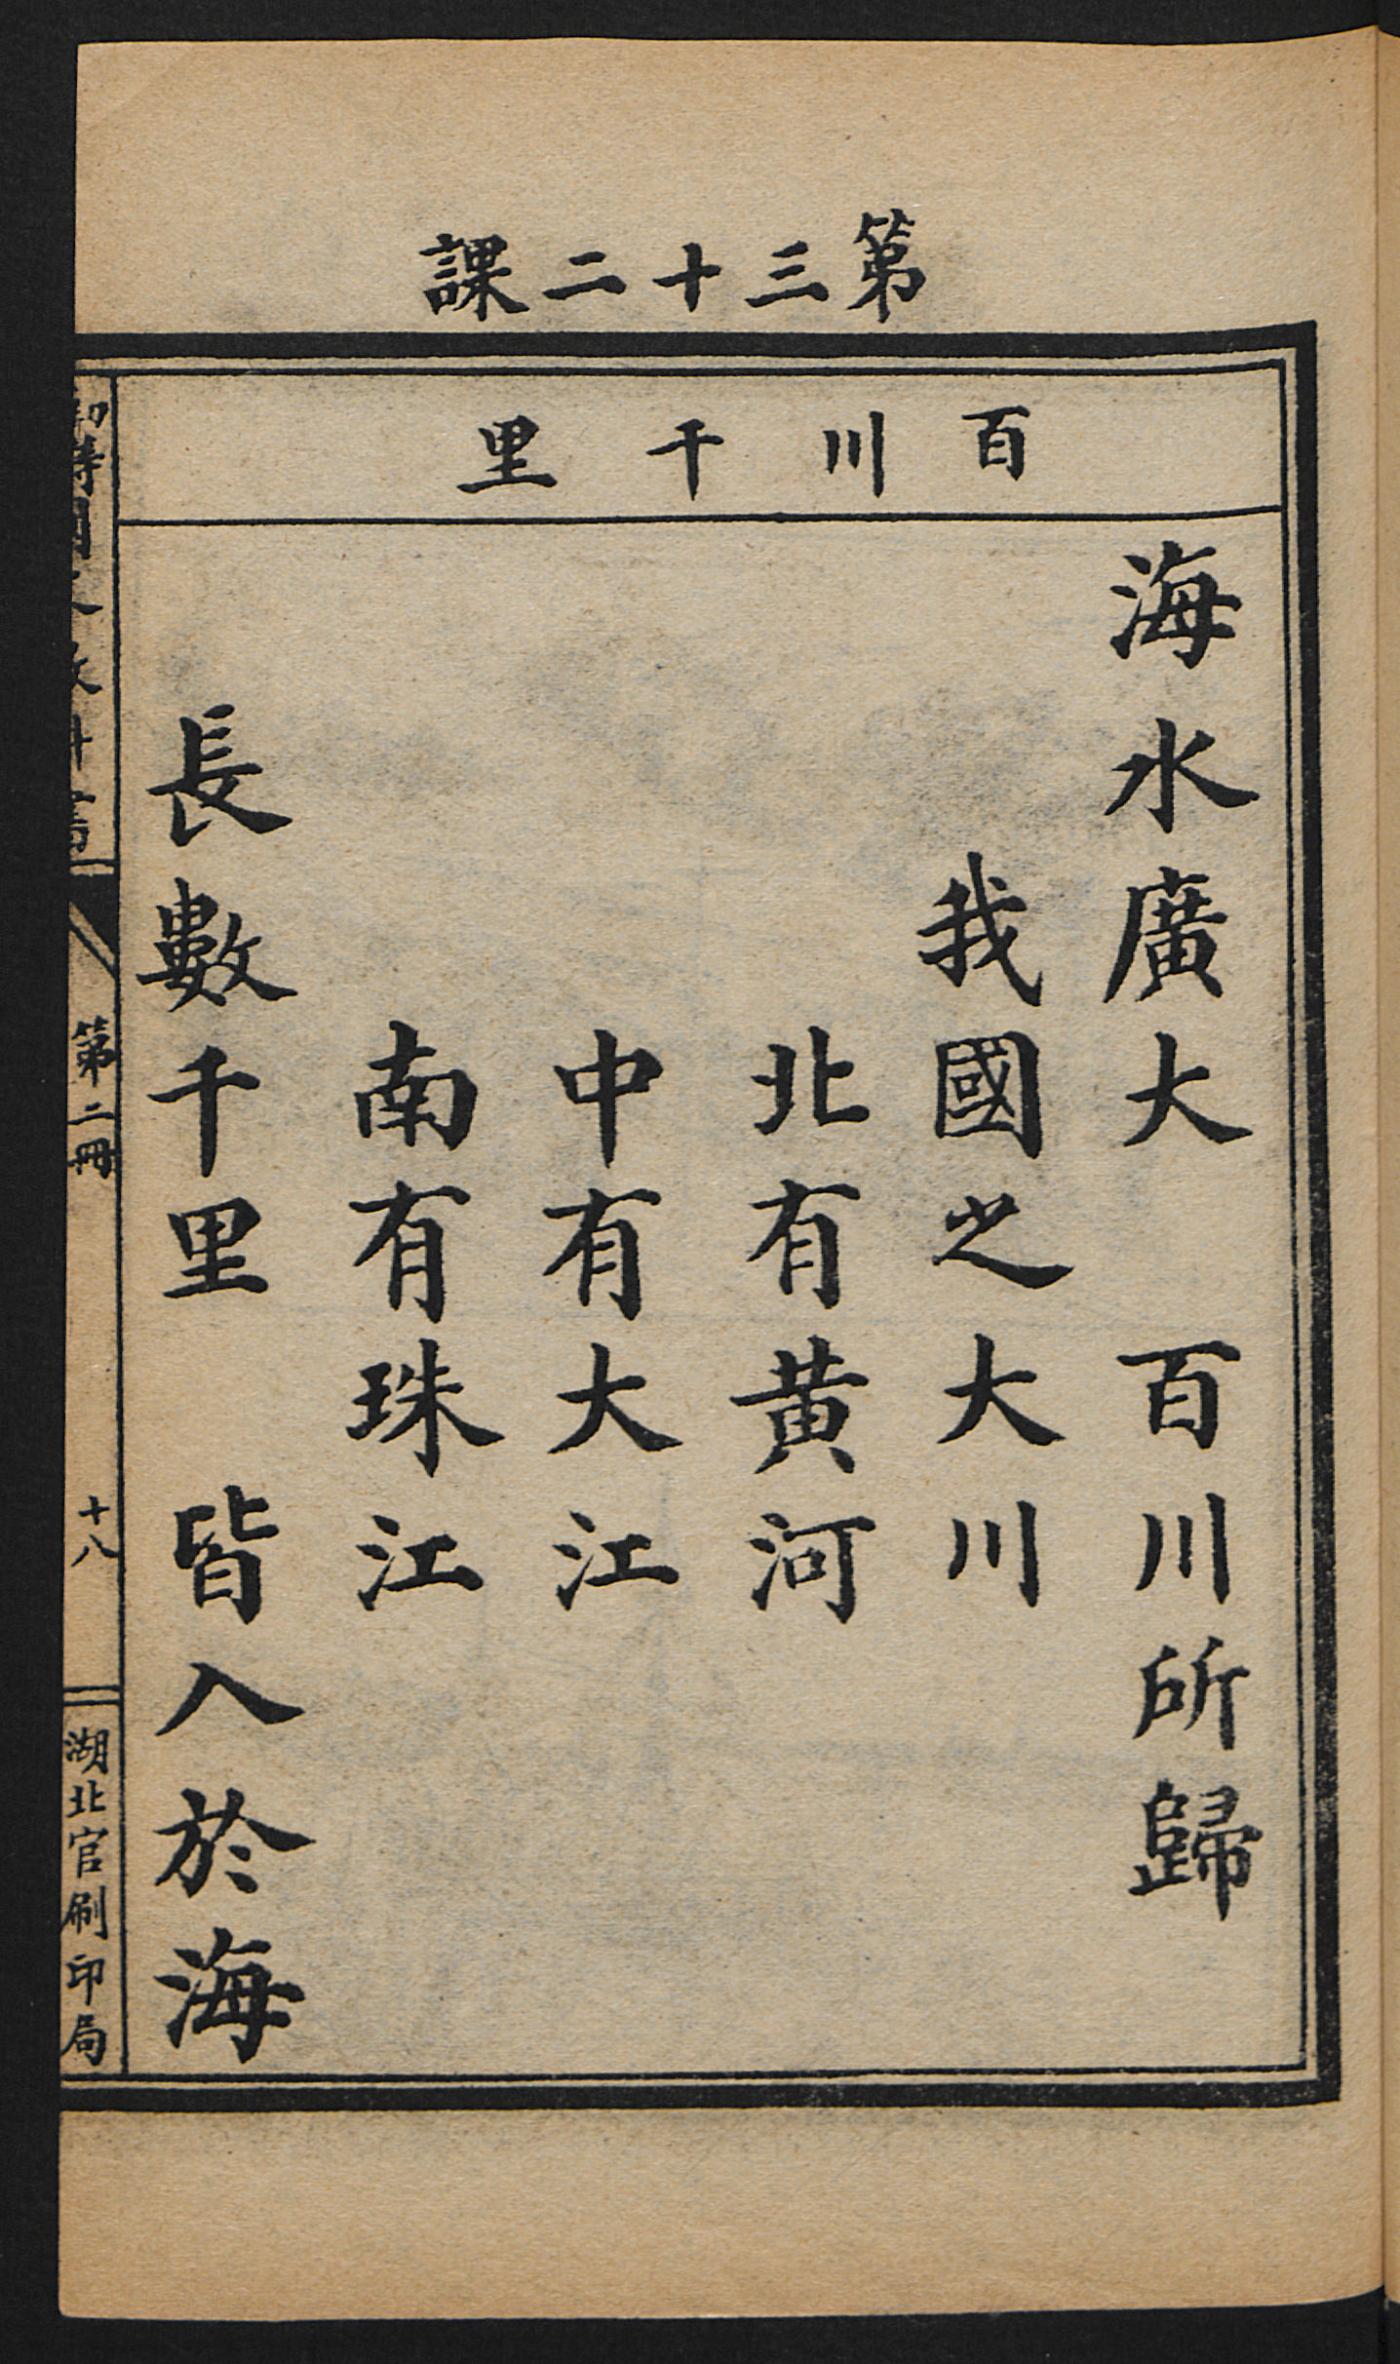 第三十二課
百川千里
海水廣大　百川所歸
我國之大川
北有黃河
中有大江
南有珠江
長數千里　皆入於海
第二冊
十八
湖北官刷印局